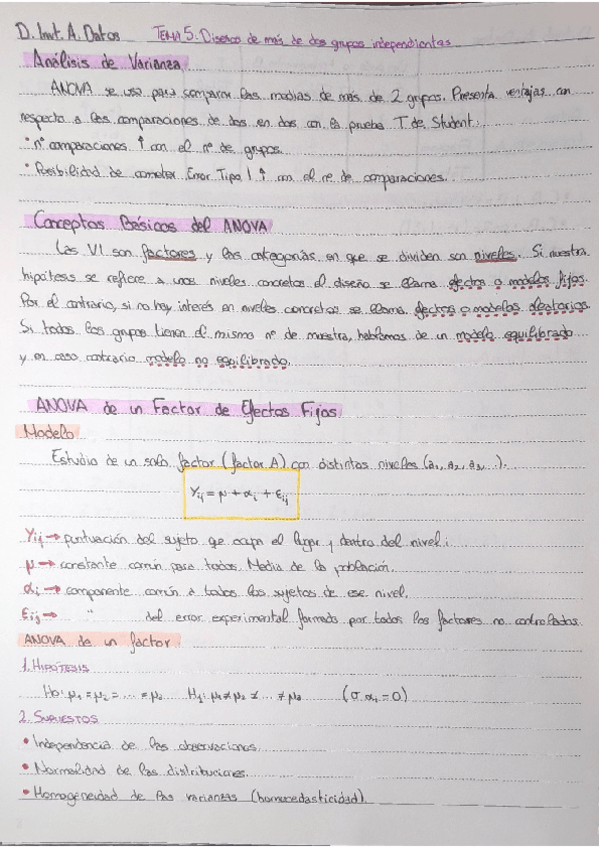 D. Inv. A. Datos TEMA 5. Diseño de más de dos grupos independientes
Análisis de Varianza
ANOVA se usa para comparar las medias de más de 2 grupos. Presenta ventajas con
respecto a las comparaciones de dos en dos con la prueba T de Student:
· nº comparaciones ↑ con el nº de grupos.
· Posibilidad de cometer Error Tipo I ↑ con el nº de comparaciones.
Conceptos Básicos del ANOVA
Las VI son factores y las categorías en que se dividen son niveles. Si nuestra
hipótesis se refiere a unos niveles concretos el diseño se llama efectos o modelos fijos.
Por el contrario, si no hay interés en niveles concretos se llama efectos o modelos aleatorios.
Si todos los grupos tienen el mismo nº de muestra, hablamos de un modelo equilibrado
y en caso contrario modelo no equilibrado.
ANOVA de un Factor de Efectos Fijos
Modelo
Estudio de un solo factor (factor A) con distintos niveles (a₁, a₂, a₃, ...).
Yij = μ + αj + εij
Yij → puntuación del sujeto que ocupa el lugar y dentro del nivel i
μ → constante común para todos. Media de la población.
αi → componente común a todos los sujetos de ese nivel.
εij → " del error experimental formado por todos los factores no controlados.
ANOVA de un factor
1. HIPÓTESIS
H₀: μ₁ = μ₂ = ... = μa H₁: μ₁ ≠ μ₂ ≠ ... ≠ μa (σ αi = 0)
2. SUPUESTOS
• Independencia de las observaciones.
• Normalidad de las distribuciones.
• Homogeneidad de las varianzas (homocedasticidad).